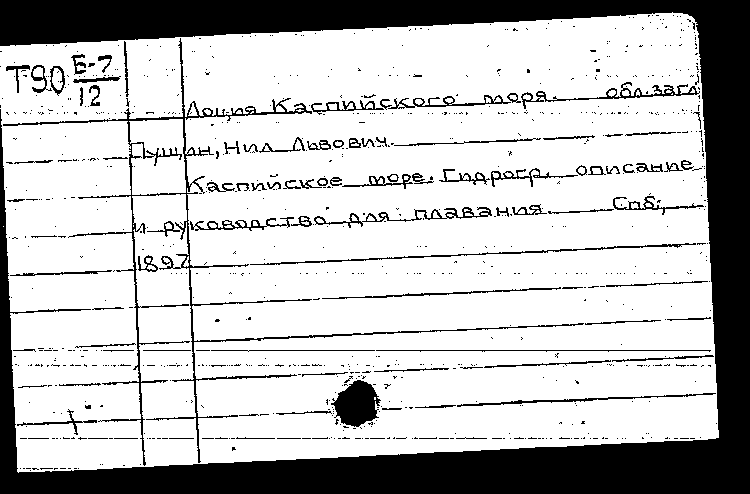 Т90 Б-7
12
Лоция Каспийского моря. обл.загл
Пущин, Нил Львович.
Каспийское море. Гидрогр. описание
и руководство для плавания. Спб.,
1897